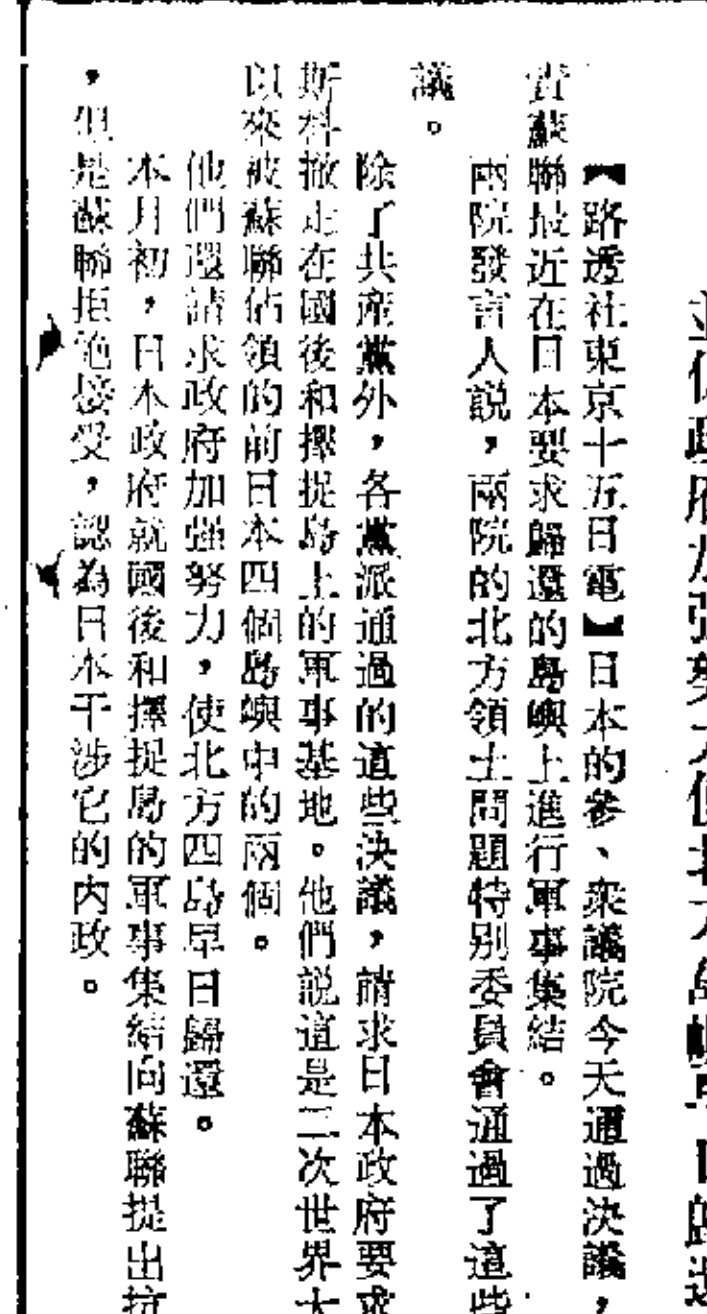 並促政府加強努力使北方島嶼早日歸還
【路透社東京十五日電】日本的參、衆議院今天通過決議,
責蘇聯最近在日本要求歸還的島嶼上進行軍事集結。
兩院發言人説,兩院的北方領土問題特别委員會通過了這些
議。
除了共産黨外,各黨派通過的這些決議,請求日本政府要求
斯科撤走在國後和擇捉島上的軍事基地。他們説這是二次世界大
以來被蘇聯佔領的前日本四個島嶼中的兩個。
他們還請求政府加强努力,使北方四島早日歸還。
本月初,日本政府就國後和擇捉島的軍事集結向蘇聯提出抗
,但是蘇聯拒絶接受,認為日本干涉它的内政。